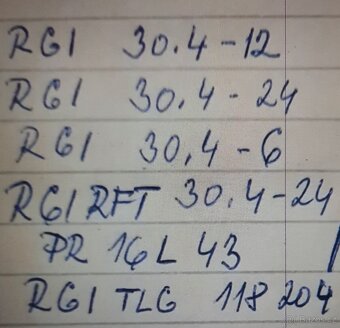 RG1 30.4-12
RG1 30.4-24
RG1 30.4-6
RG1 RFT 30.4-24
PR 16L 43
RG1 TLG 118 204